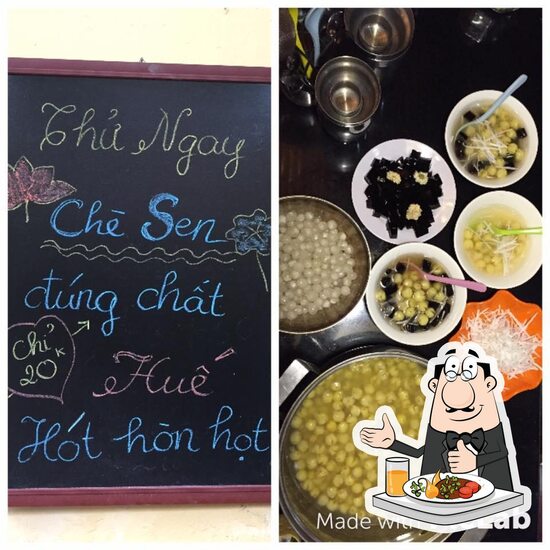 Thử Ngay
Chè Sen
đúng chất
Chỉ
20 K
Huế
Hót hòn họt
Made with
Lab